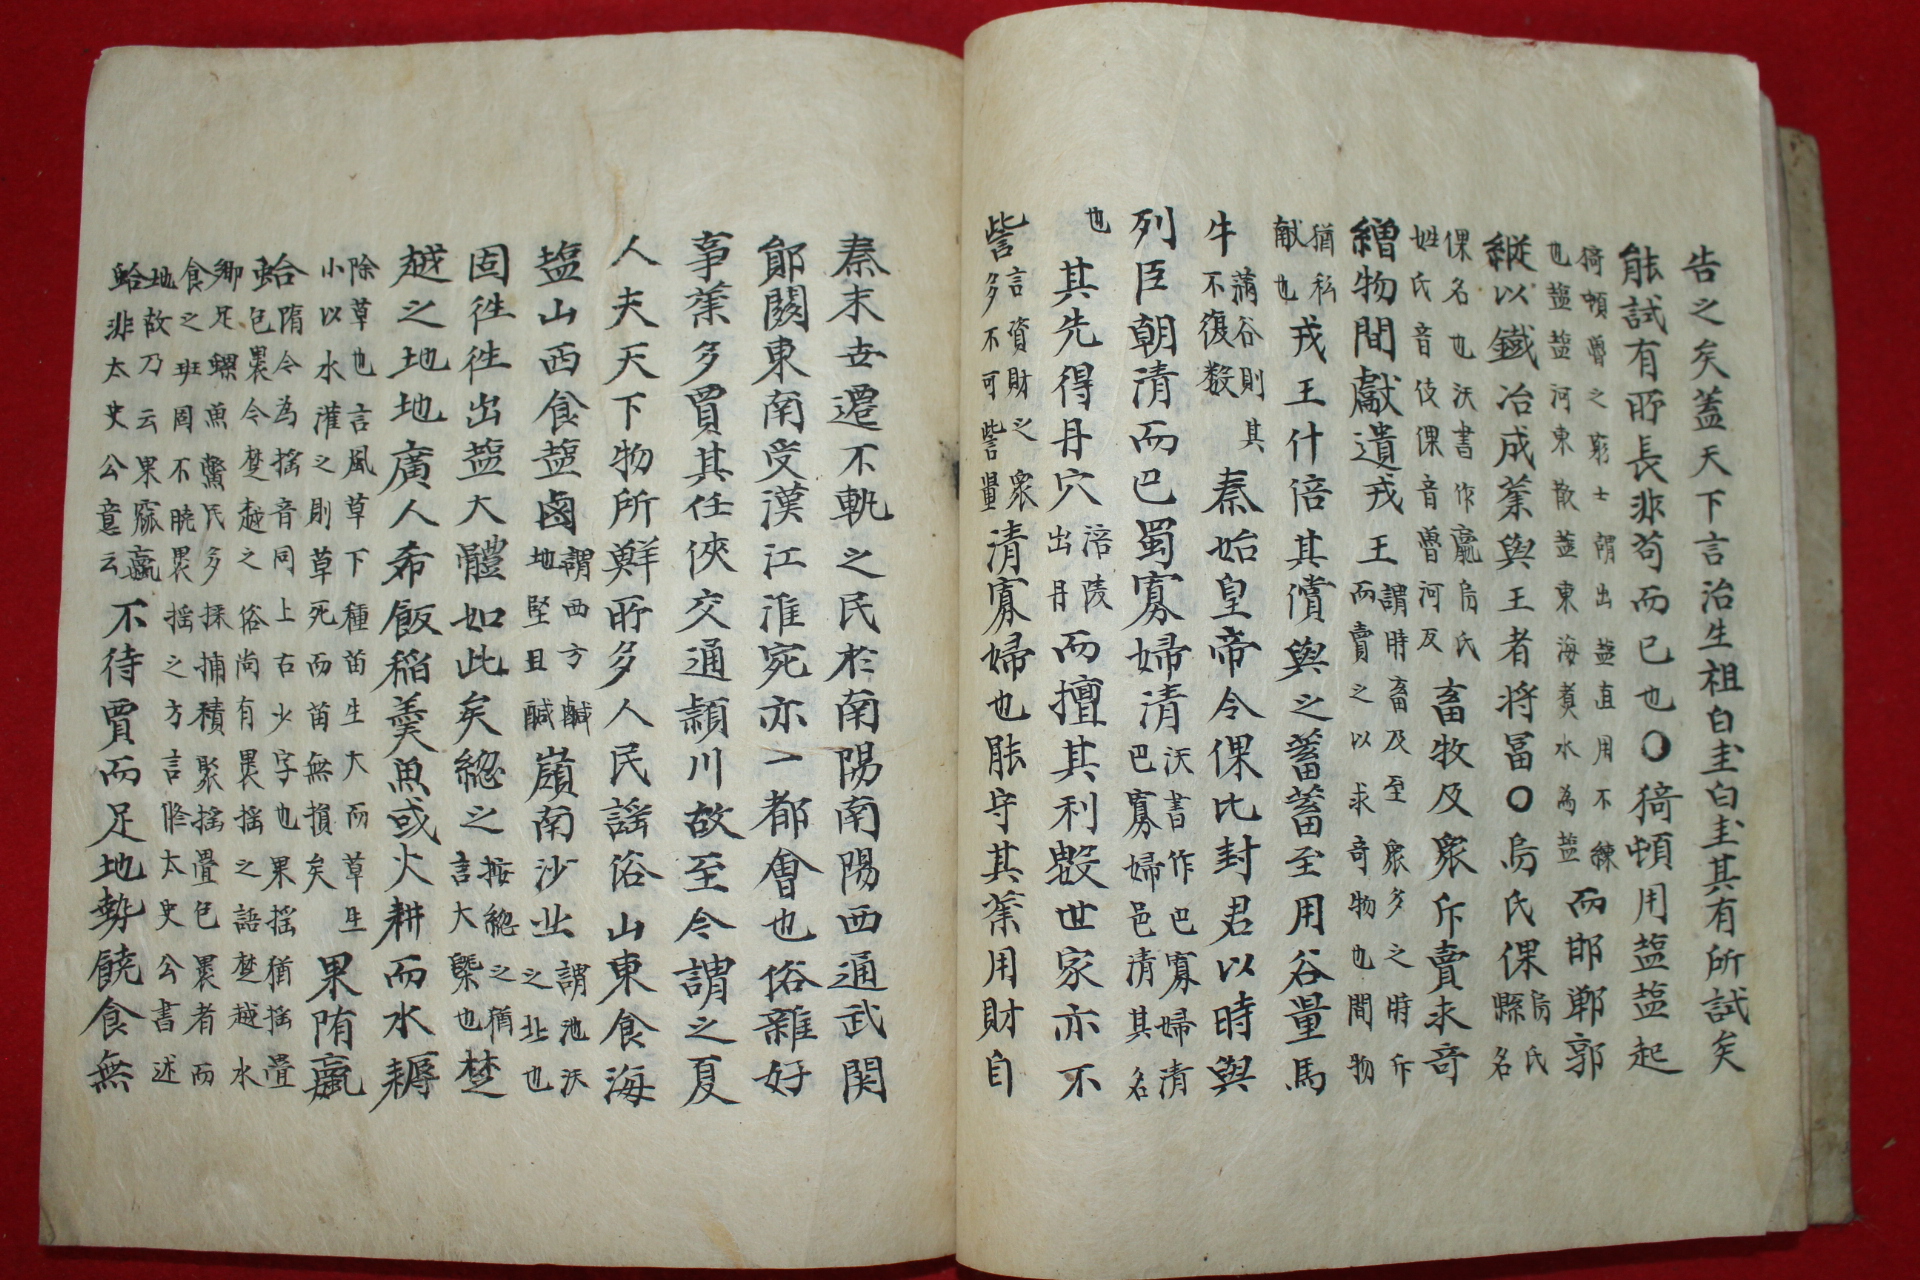 告之矣蓋天下言治生祖白圭白圭其有所試矣
能試有所長非苟而已也〇猗頓用塩塩起
猗頓魯之窮士謂出塩直用不練
也塩塩河東散塩東海煑水為塩
而邯鄲郭
縱以鐵冶成業與王者埒冨〇烏氏倮
烏氏
縣名
倮名也沃書作臝烏氏
姓氏音伎倮音魯河反
畜牧及衆斥賣求竒
繒物間獻遺戎王
謂時畜及至衆多之時斥
而賣之以求竒物也間物
猶私
献也
戎王什倍其償與之蓄蓄至用谷量馬
牛
滿谷則其
不復数
秦始皇帝令倮比封君以時與
列臣朝清而巴蜀寡婦清
沃書作巴寡婦清
巴寡婦邑清其名
也
其先得丹穴
涪陵
出丹
而擅其利數世家亦不
訾
言資財之衆
多不可訾量
清寡婦也能守其業用財自
秦末世遷不軌之民於南陽南陽西通武関
鄖関東南受漢江淮宛亦一都會也俗雜好
事業多賈其任俠交通潁川故至今謂之夏
人夫天下物所鮮所多人民謡俗山東食海
塩山西食塩鹵
謂西方鹹
地堅且鹹
嶺南沙北
謂池沃
之北也
固徃徃出塩大體如此矣緫之
按緫之猶
言大槩也
楚
越之地地廣人希飯稲羮魚或火耕而水耨
除草也言風草下種苗生大而草生
小以水灌之則草死而苗無損矣
果陏蠃
蛤
隋今為㨱音同上古少字也果㨱猶㨱疊
包裹今楚越之俗尚有裹㨱之語楚越水
鄉足螺魚鱉民多採捕積聚㨱疊包裹者而
食之班固不曉裹㨱之方言脩太史公書述
地故乃云果蓏蠃
蛤非太史公意云
不待賈而足地勢饒食無